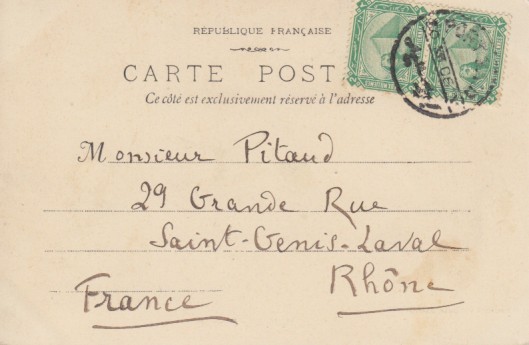 RÉPUBLIQUE FRANÇAISE
CARTE POST
Ce côté est exclusivement réservé à l'adresse
Monsieur Pitaud
29 Grande Rue
Saint-Genis-Laval
Rhône
France